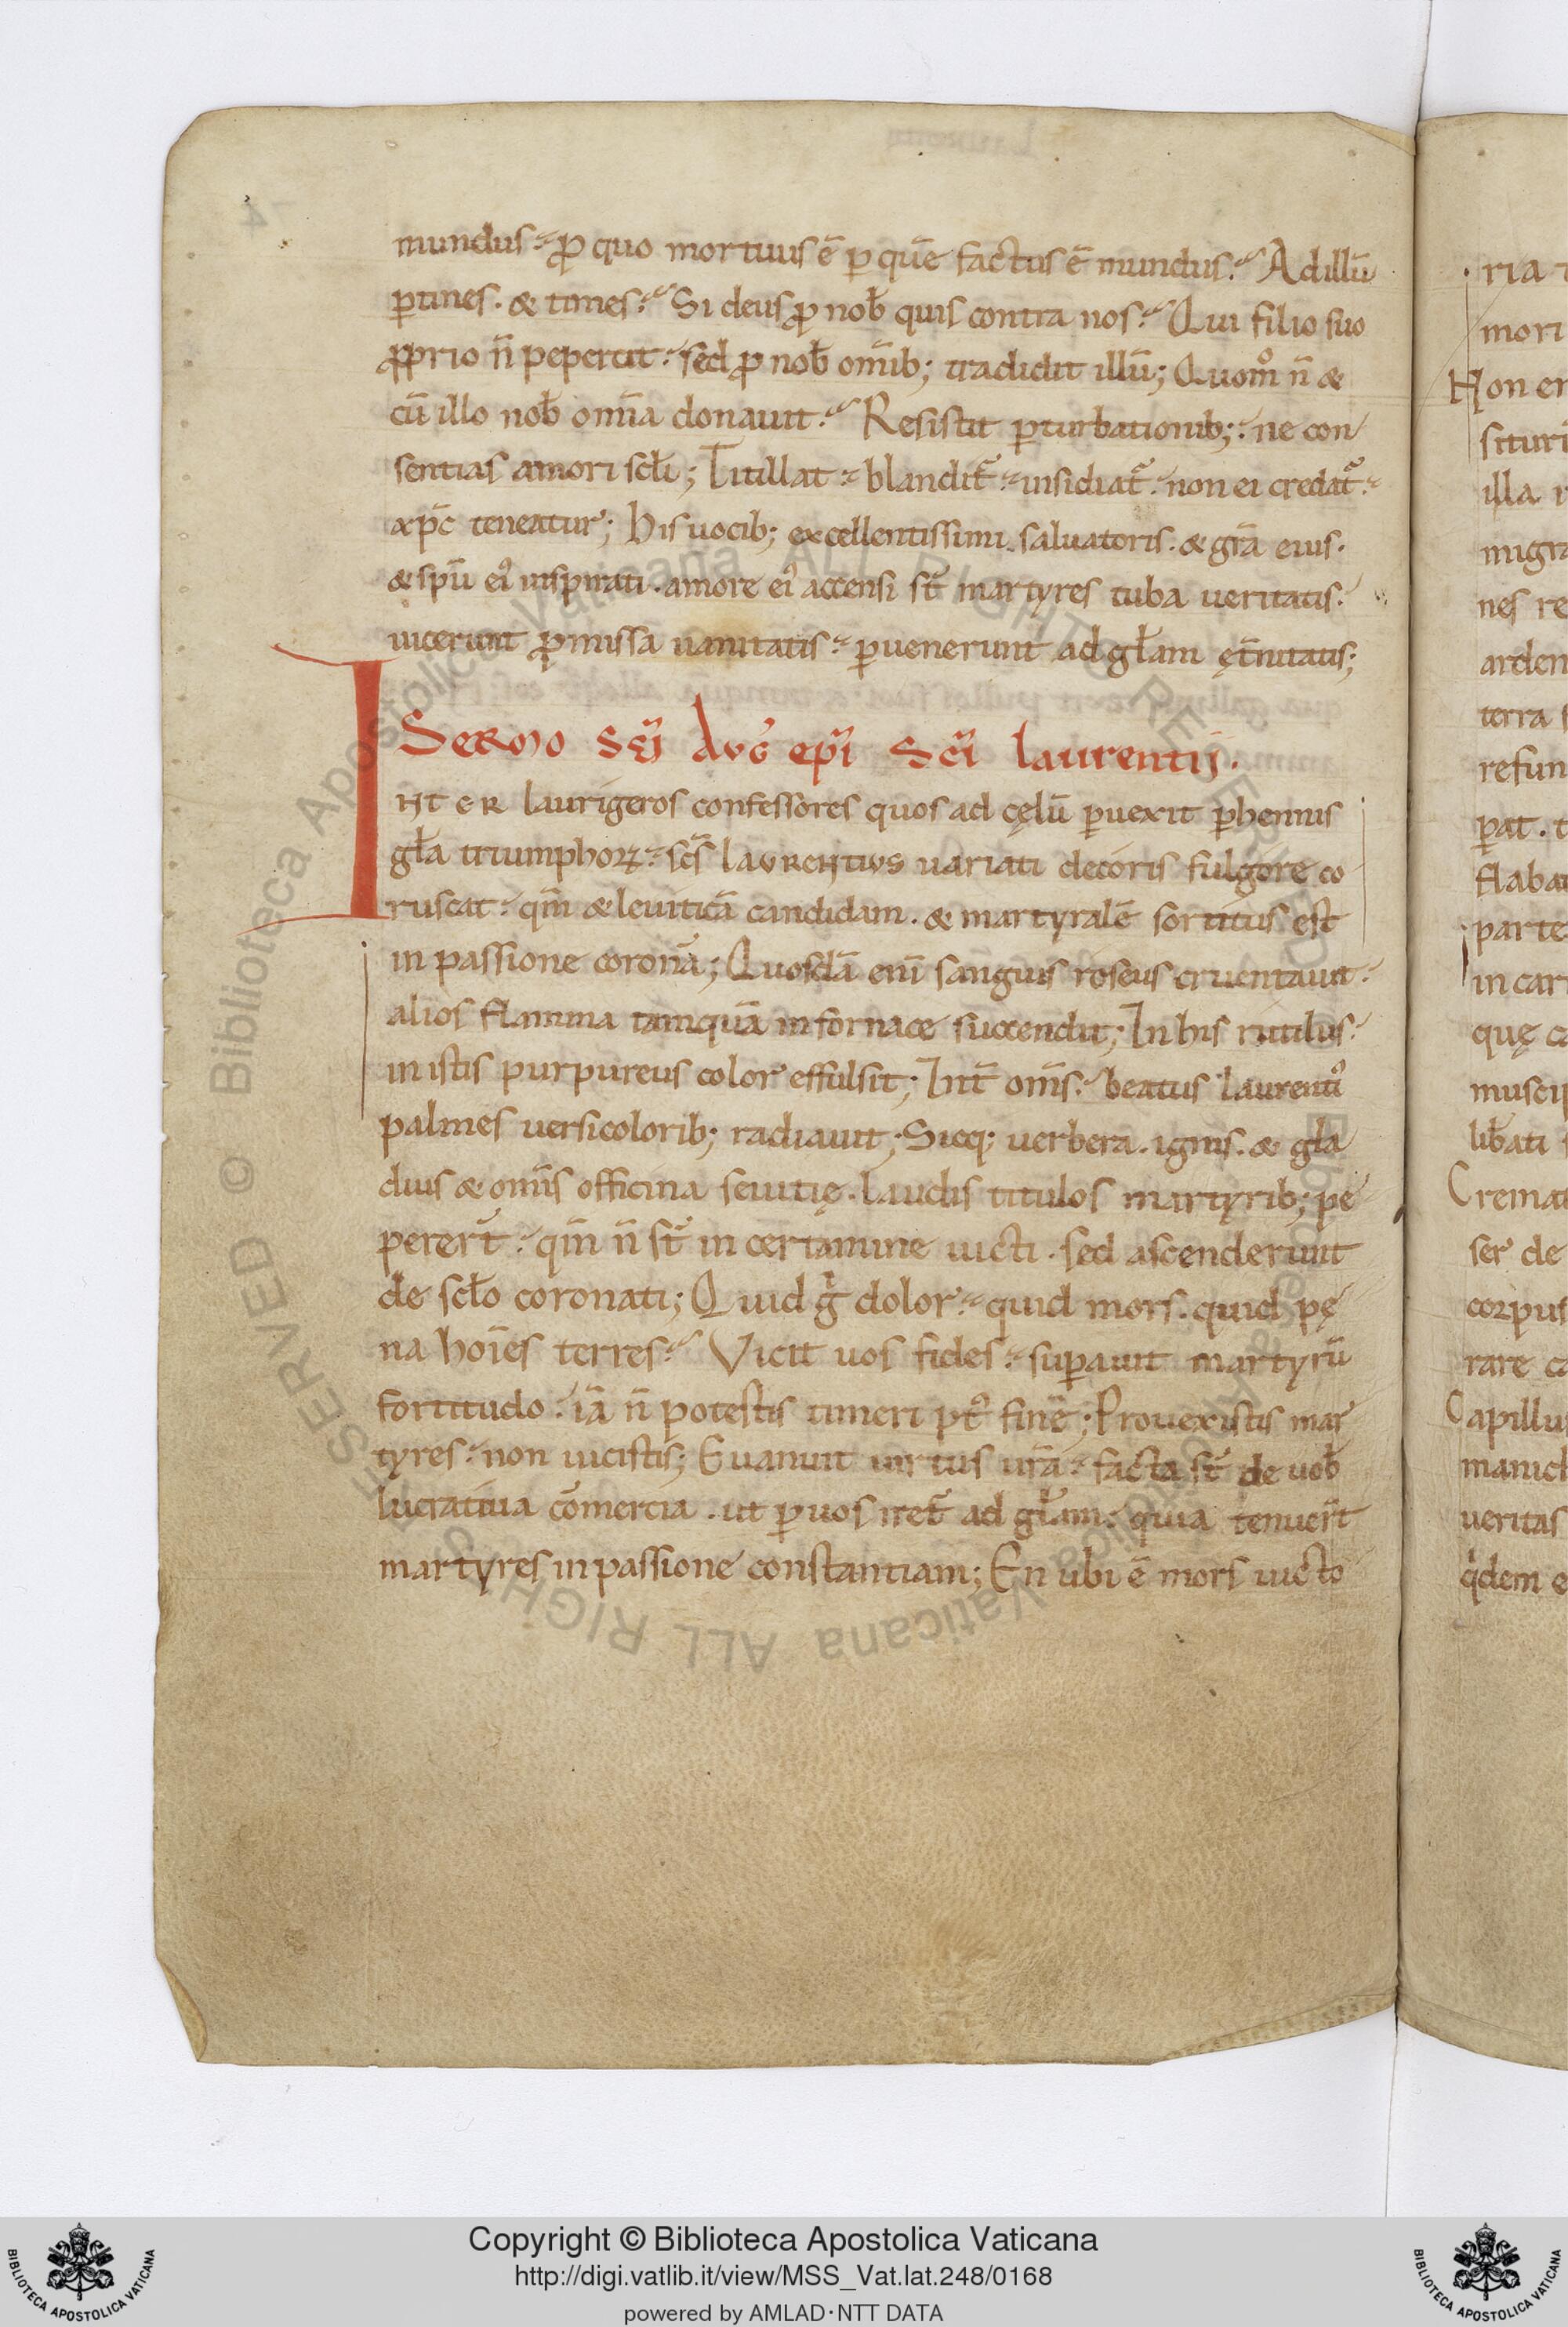 mundus. ꝓ quo mortuus ē ꝑ quē factus ē mundus. Ad illū
ꝑtines. & times. Si deus ꝓ nob̄ quis contra nos. Qui filio suo
ꝓprio n̄ pepercit. sed ꝓ nob̄ om̄ib; tradidit illū; Quom̊ n̄ &
cū illo nob̄ om̄ia donauit. Resistit ꝑturbationib;. ne con
sentias amori scl̄i; Titillat. blandit᷑. insidiat᷑. non ei credat᷑.
a xp̄c teneatur; His uocib; excellentissimi saluatoris. & gr̄a eius.
& sp̄u ei᷒ inspirati. amore ei᷒ accensi st̄ martyres tuba ueritatis.
uicerunt ꝓmissa uanitatis. ꝑuenerunt ad gl̄am ęt̄nitatis;
Sermo sc̄i Auḡ ep̄i Sc̄i laurentij.
INTER laurigeros confessores quos ad cęlū ꝑuexit ꝑhennis
gl̄a triumphoꝝ. sc̄s laurentius uariati decoris fulgore co
ruscat. qm̄ & leuiticā candidam. & martyralē sortitus est
in passione coronā; Quosdā eni᷑ sanguis roseus cruentauit.
alios flamma tamquā in fornace succendit; In his rutilus.
in istis purpureus color effulsit; Int̄ om̄s. beatus laurenti᷒
palmes uersicolorib; radiauit; Sicq; uerbera. ignis. & gla
dius & om̄is officina seuitię. laudis titulos martyrib; pe
perert̄. qm̄ n̄ st̄ in certamine uicti. sed ascenderunt
de scl̄o coronati; Quid g̊ dolor. quid mors. quid pę
na hoīes terres. Vicit uos fides. suꝑauit martyrū
fortitudo. iā n̄ potestis timeri pt᷒ finē; Prouexistis mar
tyres. non uicistis; Euanuit uirtus ur̄a. facta st̄ de uob̄
lucratiua cōmercia. ut ꝑ uos iret᷑ ad gl̄am. quia tenuer̄t
martyres in passione constantiam; En ubi ē mors uicto
ria
mori
Non er
situri
illa
migra
nes re
arden
terra
refun
ꝑat.
flaba
parte
in car
quę
musci
lib̄ati
Cremat
ser de
corpus
rare
Capillus
manic
ueritas
q̇dem
© Biblioteca Apostolica Vaticana ALL RIGHTS RESERVED
Copyright © Biblioteca Apostolica Vaticana
http://digi.vatlib.it/view/MSS_Vat.lat.248/0168
powered by AMLAD·NTT DATA
BIBLIOTECA APOSTOLICA VATICANA
BIBLIOTECA APOSTOLICA VATICANA